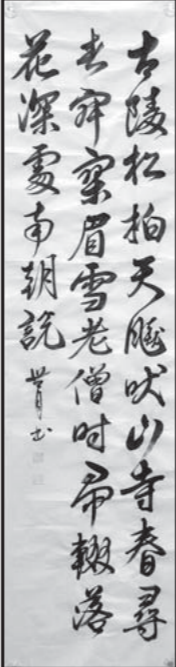 古陵松柏天飈吠山寺春尋
春寂寥眉雪老僧时帚輟落
花深處南朝說